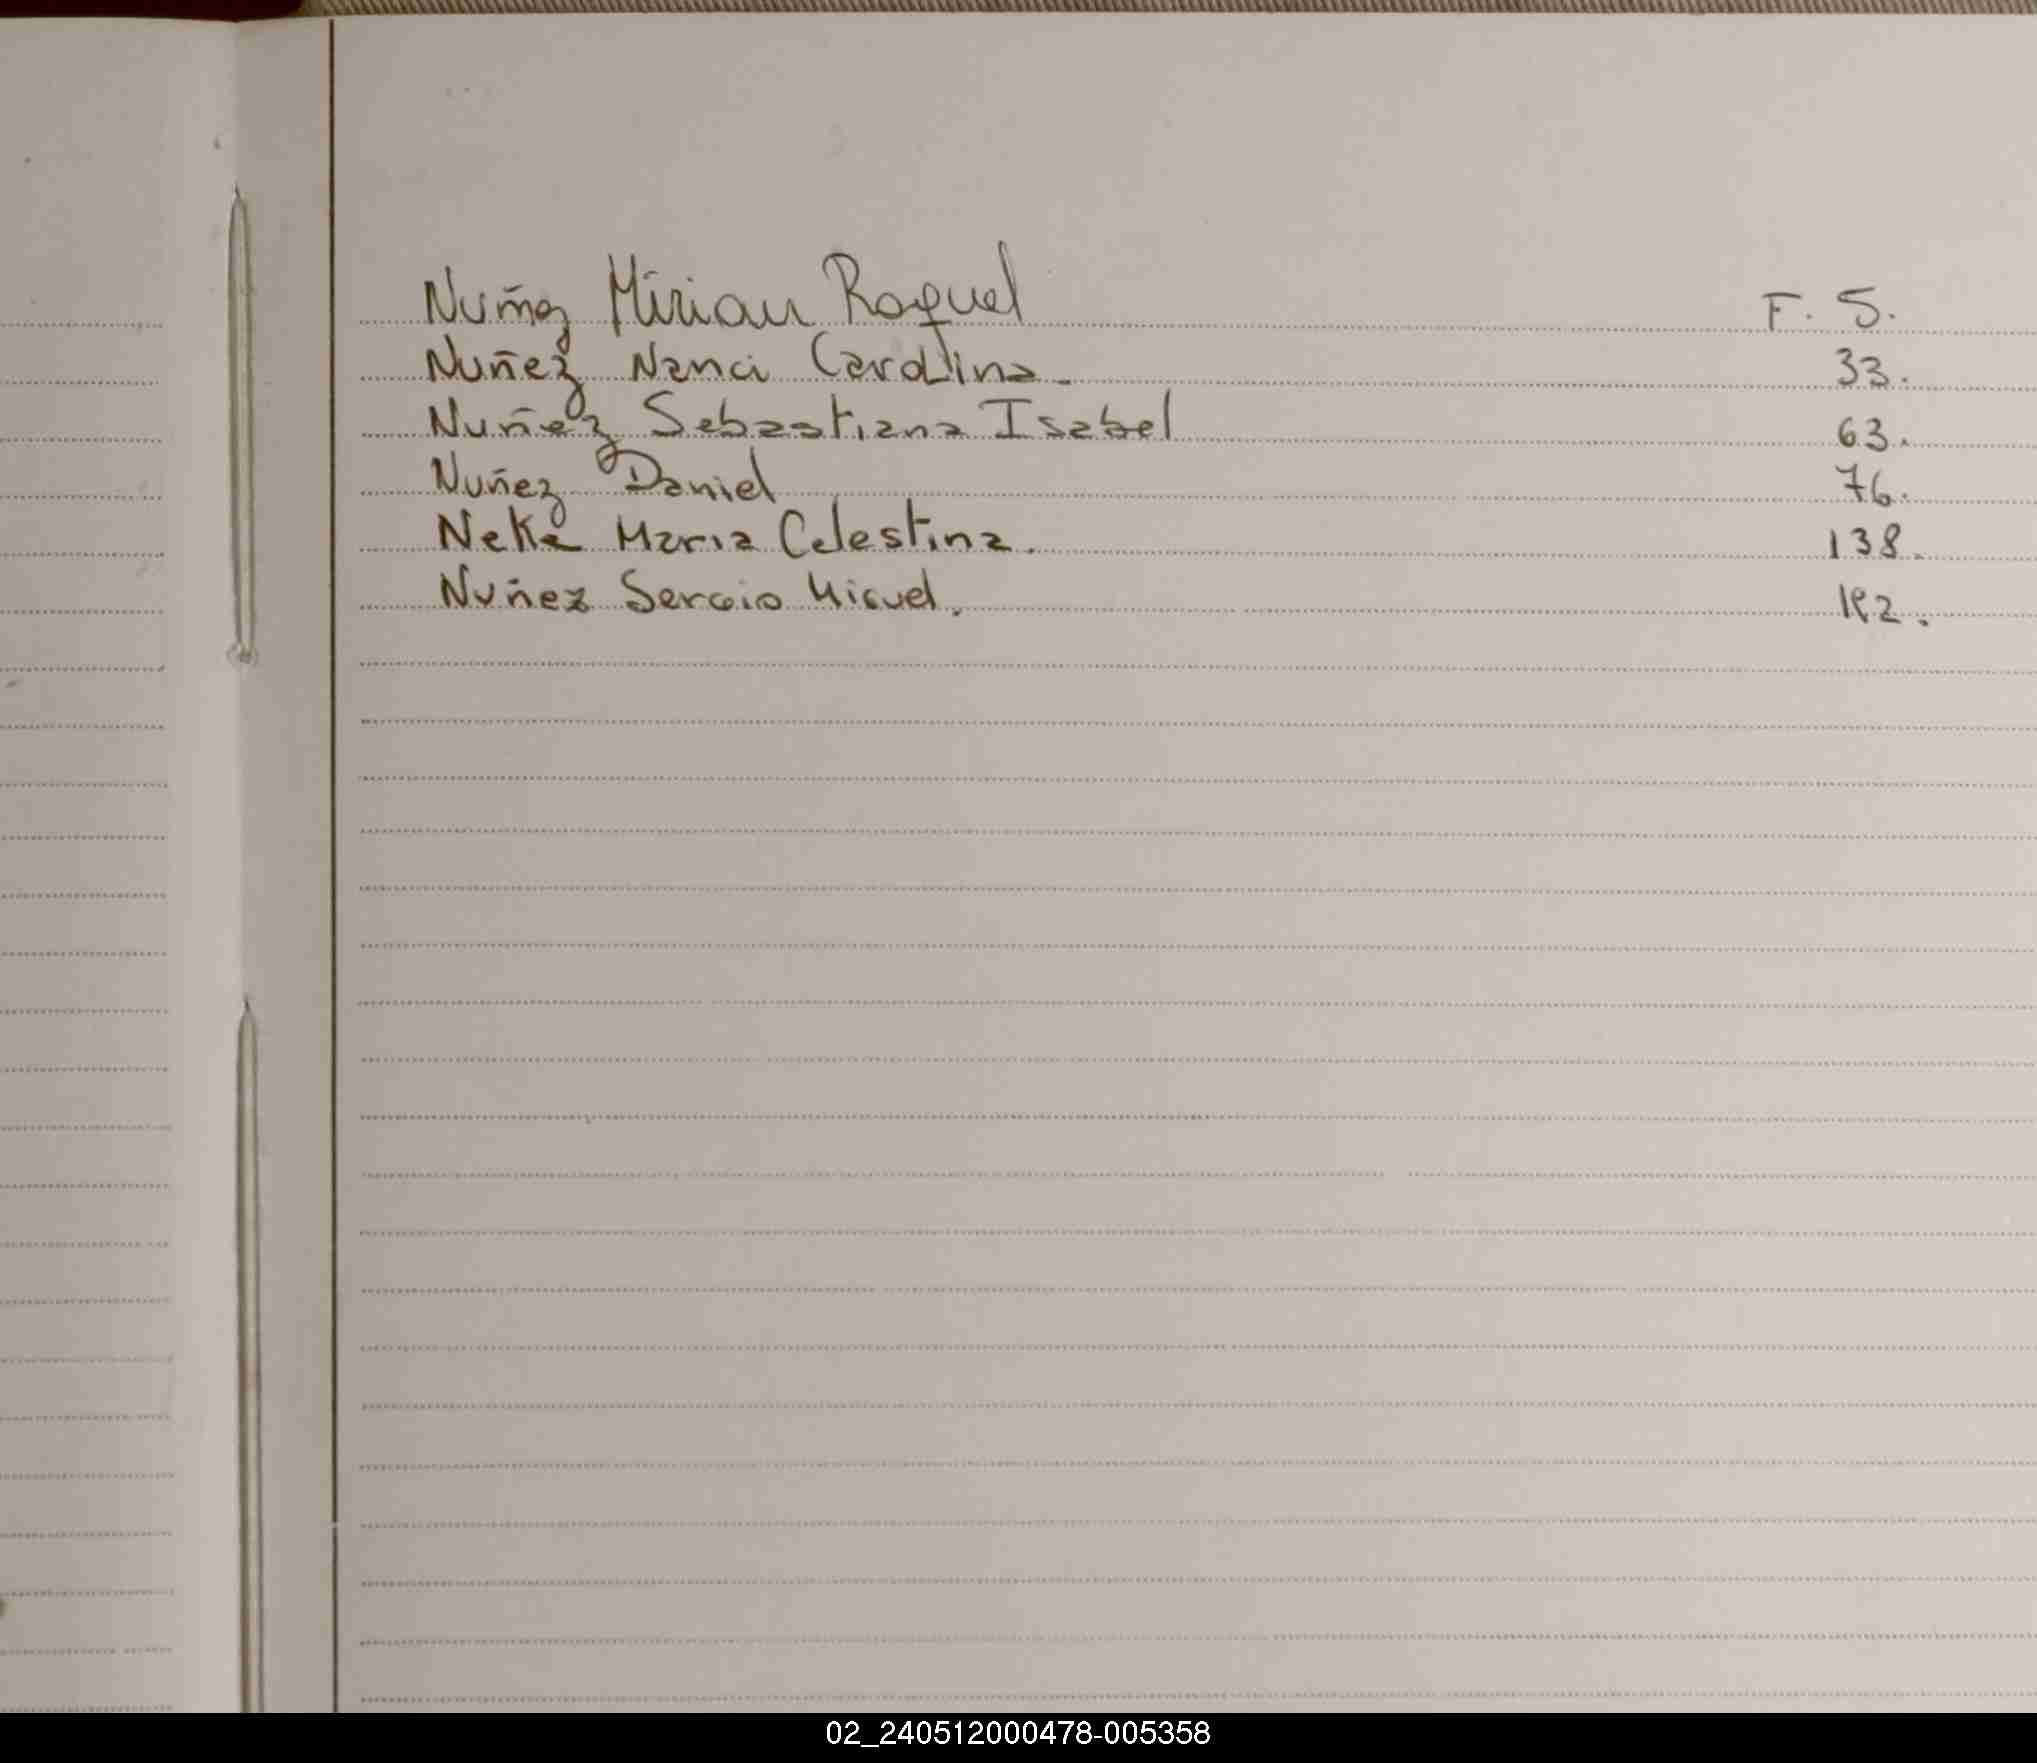 Nuñez Mirian Raquel F. 5.
Nuñez Nanci Carolina. 33.
Nuñez Sebastiana Isabel 63.
Nuñez Daniel 76.
Neke Maria Celestina. 138.
Nuñez Sergio Miguel.
02_240512000478-005358